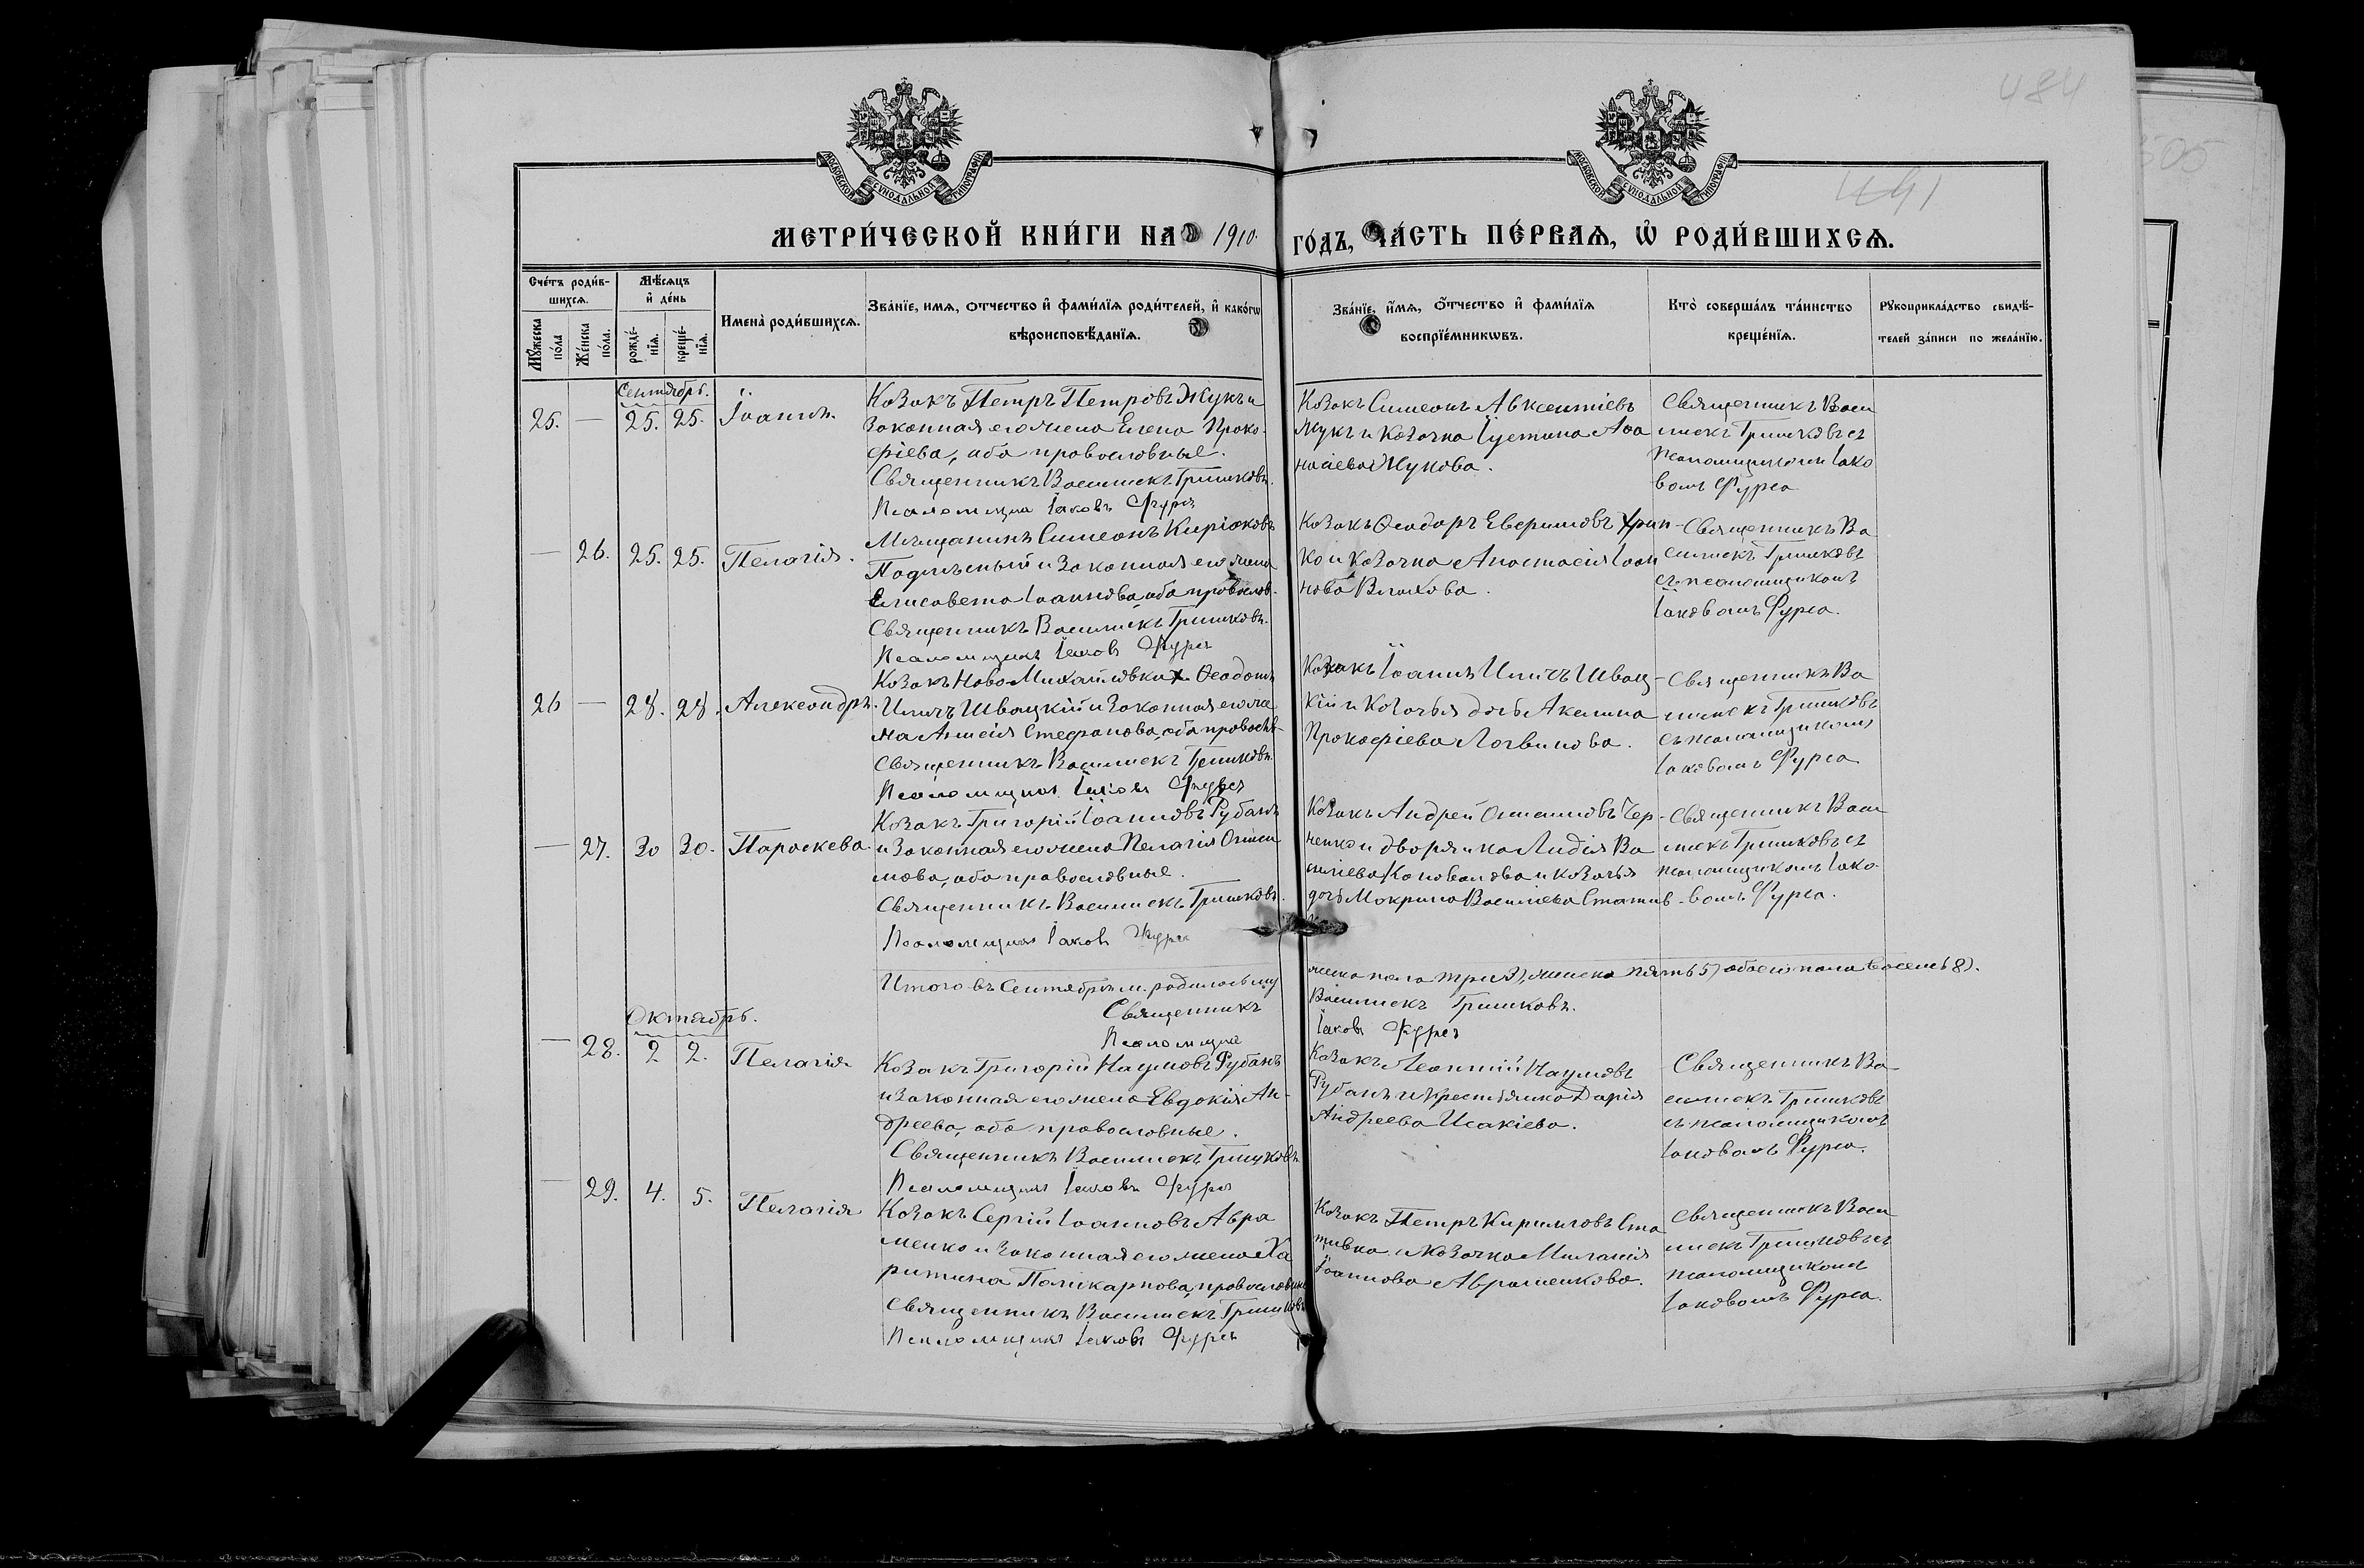 484
505
441
МОСКОВСКОЙ СѴНОДАЛЬНОЙ ТИПОГРАФІИ
МОСКОВСКОЙ СѴНОДАЛЬНОЙ ТИПОГРАФІИ
МЕТРИ́ЧЕСКОЙ КНИ́ГИ НА 1910 ГО́ДЪ, ЧА́СТЬ ПЕ́РВАѦ, Ѡ҆ РОДИ́ВШИХСѦ.
Сче́тъ роди́в-
шихсѧ.
Мꙋ́жеска по́ла
Же́нска по́ла.
Мѣ́сѧцъ
и҆ де́нь
рожде́-
нїѧ.
креще́-
нїѧ.
Имена̀ роди́вшихсѧ.
Зва́нїе, имѧ, отчество и҆ фами́лїѧ роди́телей, и҆ како́гѡ
вѣроисповѣ́данїѧ.
Зва́нїе, и҆́мѧ, о҆́тчество и҆ фами́лїѧ
воспрїе́мникѡвъ.
Кто̀ соверша́лъ та́инство
креще́нїѧ.
Рꙋкоприкла́дство свидѣ́-
телей за́писи по жела́нїю.
Сентябрь.
25. — 25. 25. Іоаннъ.
Козакъ Петръ Петровъ Жукъ и
законная его жена Елена Проко-
фіева, оба православные.
Священникъ Василискъ Гришковъ.
Псаломщикъ Іаковъ Фурса
Козакъ Симеонъ Авксентіевъ
Жукъ и козачка Іустина Аѳа
насіева Жукова.
Священникъ Васи
лискъ Гришковъ съ
псаломщикомъ Іако
вомъ Фурса
— 26. 25. 25. Пелагія.
Мѣщанинъ Симеонъ Киріаковъ
и законная его жена
Елисавета Іоаннова, оба правосл.
Священникъ Василискъ Гришковъ.
Псаломщикъ Іаковъ Фурса
Козакъ Ѳеодоръ
ко и козачка Анастасія Іоан
нова
Священникъ Ва
силискъ Гришковъ
съ псаломщикомъ
Іаковомъ Фурса.
26 — 28. 28. Александръ.
Козакъ Ново-Михайловки Ѳеодотъ
Иличъ Швацкій и законная его же
на Анисія Стефанова, оба правосл-
Священникъ Василискъ Гришковъ.
Псаломщикъ Іаковъ Фурса
Козакъ Іоаннъ Иличъ Швац-
кій и козачья дочь Акилина
Прокофіева Логвинова.
Священникъ Ва
силискъ Гришковъ
съ псаломщикомъ
Іаковомъ Фурса
— 27. 30 30. Параскева.
Козакъ Григорій Іоанновъ Рубанъ
и законная его жена Пелагія
оба православные.
Священникъ Василискъ Гришковъ.
Псаломщикъ Іаковъ Фурса
Козакъ Андрей Чер-
ненко и дворянка Лидія Ва
силіева Коновалова и козачья
дочь Макрина Василіева Статив-
ка
Священникъ Васи
лискъ Гришковъ съ
псаломщикомъ Іако-
вомъ Фурса.
Итого въ Сентябрѣ м. родилось му
жеска пола три 3), женска пять 5) обоего пола восемь 8).
Священникъ Василискъ Гришковъ.
Псаломщикъ Іаковъ Фурса
Октябрь.
— 28. 2 2. Пелагія
Козакъ Григорій Наумовъ Рубанъ
и законная его жена Евдокія Ан-
дреева, оба православные.
Священникъ Василискъ Гришковъ
Псаломщикъ Іаковъ Фурса
Козакъ Леонтій Наумовъ
Рубанъ и крестьянка Дарія
Андреева Исакіева.
Священникъ Ва-
силискъ Гришковъ
съ псаломщикомъ
Іаковомъ Фурса.
— 29. 4. 5. Пелагія
Козакъ Сергій Іоанновъ Авра
менко и законная его жена Ха
ритина Поликарпова, православные
Священникъ Василискъ Гришковъ
Псаломщикъ Іаковъ Фурса
Козакъ Петръ Кирилловъ Ста
тивка и козачка Миланія
Іоаннова Авраменкова.
Священникъ Васи
лискъ Гришковъ съ
псаломщикомъ
Іаковомъ Фурса.